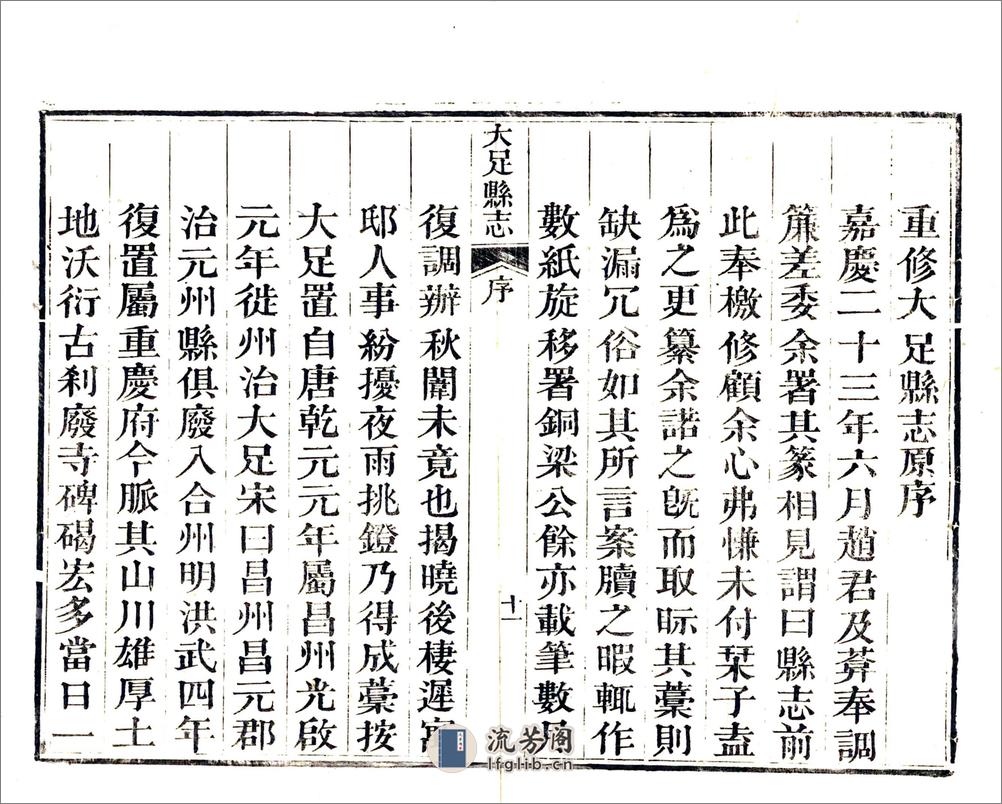 重修大足縣志原序
嘉慶二十三年六月趙君及莾奉調
簾差委余署其篆相見謂曰縣志前
此奉檄修顧余心弗慊未付棐子盍
爲之更纂余諾之旣而取眎其藁則
缺漏冗俗如其所言案牘之暇輒作
數紙旋移署銅梁公餘亦載筆數月
大足縣志
序
十一
復調辦秋闈未竟也揭曉後棲遲
邸人事紛擾夜雨挑鐙乃得成藁按
大足置自唐乾元元年屬昌州光啟
元年徙州治大足宋曰昌州昌元郡
治元州縣俱廢入合州明洪武四年
復置屬重慶府今脈其山川雄厚土
地沃衍古刹廢寺碑碣宏多當日一
流芳阁
lfglib.cn